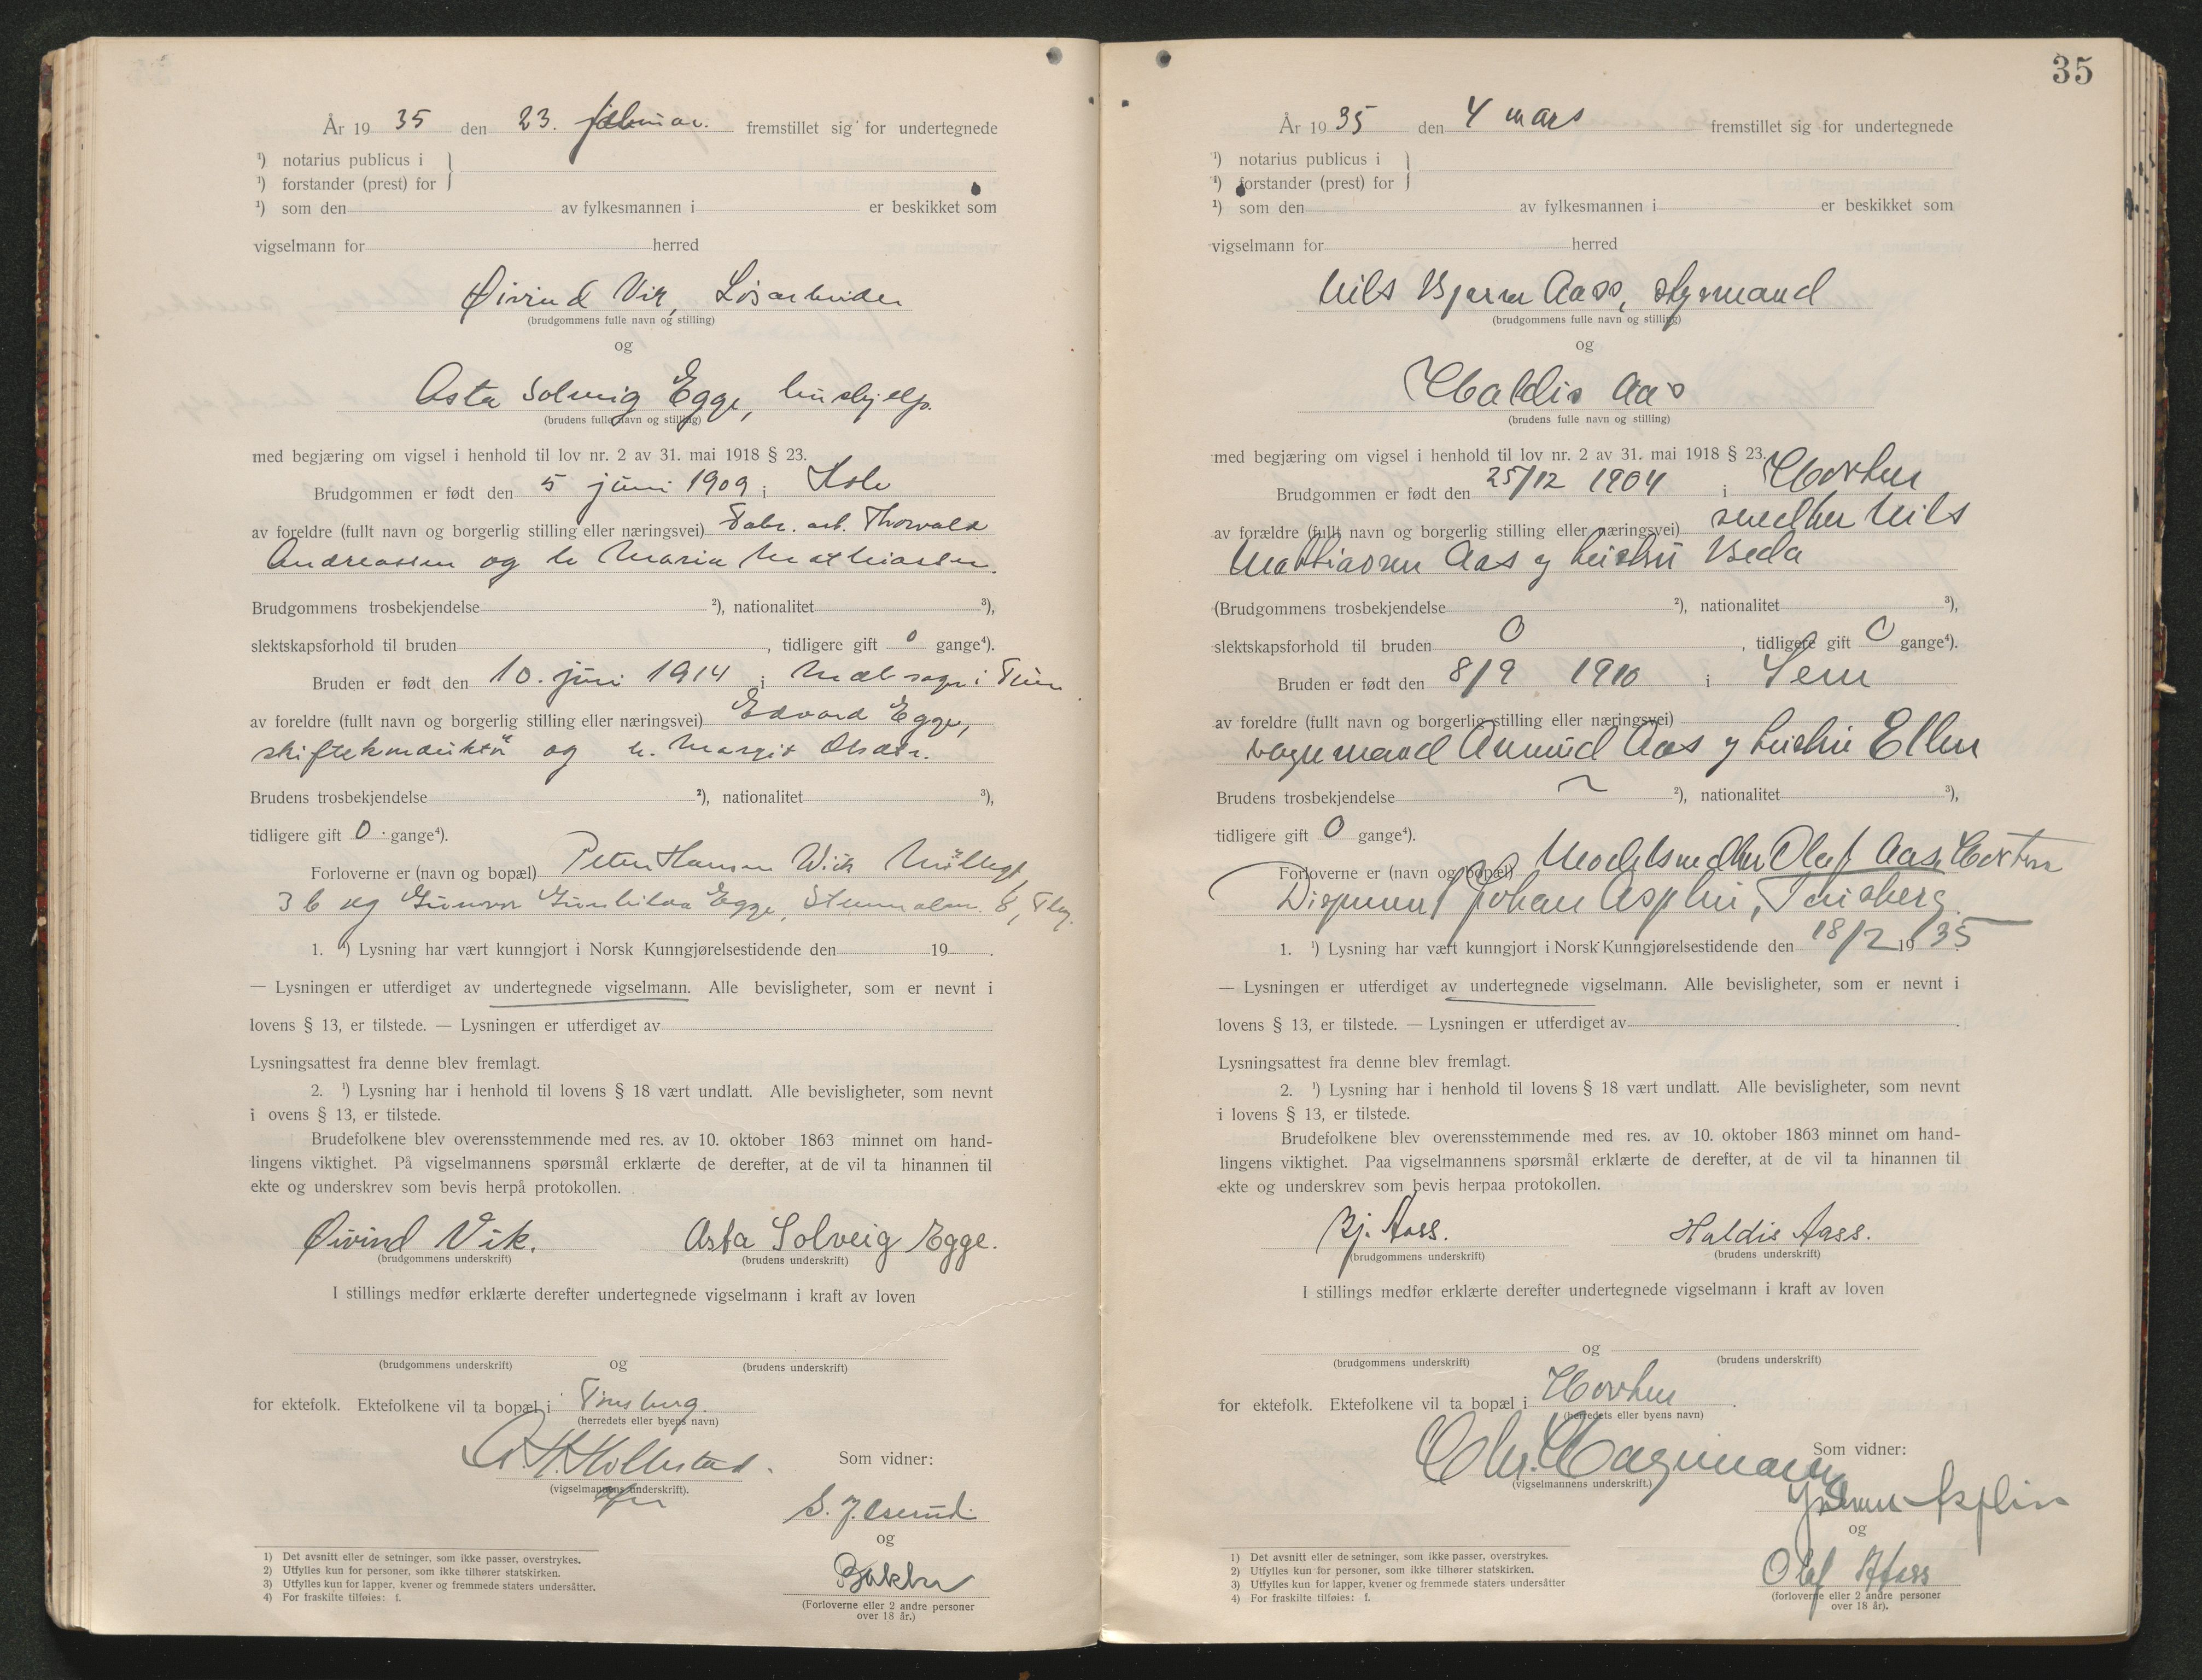 År 19 35 den 23. februar. fremstillet sig for undertegnede
¹) notarius publicus i
¹) forstander (prest) for
¹) som den av fylkesmannen i er beskikket som
vigselmann for herred
Øivind Vik, Løsarbeider
(brudgommens fulle navn og stilling)
og
Asta Solveig Egge, hushjelp.
(brudens fulle navn og stilling)
med begjæring om vigsel i henhold til lov nr. 2 av 31. mai 1918 § 23.
Brudgommen er født den 5 juni 1909 i Hole
av foreldre (fullt navn og borgerlig stilling eller næringsvei) Fabr. arb. Thorvald
Andreassen og h. Maria Mathiassen.
Brudgommens trosbekjendelse ²), nationalitet ³),
slektskapsforhold til bruden , tidligere gift 0 gange⁴).
Bruden er født den 10. juni 1914 i Mæl sogn i Tinn
av foreldre (fullt navn og borgerlig stilling eller næringsvei) Edvard Egge,
skiftekonduktør og h. Margit Olsdtr.
Brudens trosbekjendelse ²), nationalitet ³),
tidligere gift 0 · gange⁴).
Forloverne er (navn og bopæl) Peter Hansen Wiik Møllegt.
3 b og Gunvor Gunhilda Egge, 8, Tbg.
1. ¹) Lysning har vært kunngjort i Norsk Kunngjørelsestidende den 19 .
— Lysningen er utferdiget av undertegnede vigselmann. Alle bevisligheter, som er nevnt i
lovens § 13, er tilstede. — Lysningen er utferdiget av
Lysningsattest fra denne blev fremlagt.
2. ¹) Lysning har i henhold til lovens § 18 vært undlatt. Alle bevisligheter, som nevnt
i ovens § 13, er tilstede.
Brudefolkene blev overensstemmende med res. av 10. oktober 1863 minnet om hand-
lingens viktighet. På vigselmannens spørsmål erklærte de derefter, at de vil ta hinannen til
ekte og underskrev som bevis herpå protokollen.
Øivind Vik. Asta Solveig Egge.
(brudgommens underskrift) (brudens underskrift)
I stillings medfør erklærte derefter undertegnede vigselmann i kraft av loven
og
(brudgommens underskrift) (brudens underskrift)
for ektefolk. Ektefolkene vil ta bopæl i Tønsberg.
(herredets eller byens navn)
Som vidner:
(vigselmannens underskrift).
og
Bakke
(Forloverne eller 2 andre personer
over 18 år.)
1) Det avsnitt eller de setninger, som ikke passer, overstrykes.
2) Utfylles kun for personer, som ikke tilhører statskirken.
3) Utfylles kun for lapper, kvener og fremmede staters undersåtter.
4) For fraskilte tilføies: f.
35
År 19 35 den 4 mars fremstillet sig for undertegnede
¹) notarius publicus i
¹) forstander (prest) for
¹) som den av fylkesmannen i er beskikket som
vigselmann for herred
Nils Bjarne Aass, styrmand
(brudgommens fulle navn og stilling)
og
Haldis Aas
(brudens fulle navn og stilling)
med begjæring om vigsel i henhold til lov nr. 2 av 31. mai 1918 § 23.
Brudgommen er født den 25/12 1904 i Horten
av forældre (fullt navn og borgerlig stilling eller næringsvei) snedker Nils
Mathiasen Aas og hustru Beda
(Brudgommens trosbekjendelse ²), nationalitet ³),
slektskapsforhold til bruden 0 , tidligere gift 0 gange⁴).
Bruden er født den 8/9 1910 i Sem
av foreldre (fullt navn og borgerlig stilling eller næringsvei)
vognmand Anund Aas og hustru Ellen
Brudens trosbekjendelse ²), nationalitet ³),
tidligere gift 0 gange⁴).
Forloverne er (navn og bopæl) Modelsnedker Olaf Aas, Horten
Disponent Johan Asplin, Tønsberg.
1. ¹) Lysning har vært kunngjort i Norsk Kunngjørelsestidende den 18/2 19 35.
— Lysningen er utferdiget av undertegnede vigselmann. Alle bevisligheter, som er nevnt i
lovens § 13, er tilstede. — Lysningen er utferdiget av .
Lysningsattest fra denne blev fremlagt.
2. ¹) Lysning har i henhold til lovens § 18 vært undlatt. Alle bevisligheter, som nevnt
i lovens § 13, er tilstede.
Brudefolkene blev overensstemmende med res. av 10. oktober 1863 minnet om hand-
lingens viktighet. Paa vigselmannens spørsmål erklærte de derefter, at de vil ta hinannen til
ekte og underskrev som bevis herpaa protokollen.
Bj. Aass. Haldis Aass.
(brudgommens underskrift) (brudens underskrift)
I stillings medfør erklærte derefter undertegnede vigselmann i kraft av loven
og
(brudgommens underskrift) (brudens underskrift)
for ektefolk. Ektefolkene vil ta bopæl i Horten .
(herredets eller byens navn)
Chr. Hagemann Som vidner:
(vigselmannens underskrift.)
Johan Asplin
og
Olaf Aass
(forloverne eller 2 andre personer
over 18 år).
1) Det avsnitt eller de setninger, som ikke passer, overstrykes.
2) Utfylles kun for personer, som ikke tilhører statskirken.
3) Utfylles kun for lapper, kvener og fremmede staters undersåtter
4) For fraskilte tilføies: f.